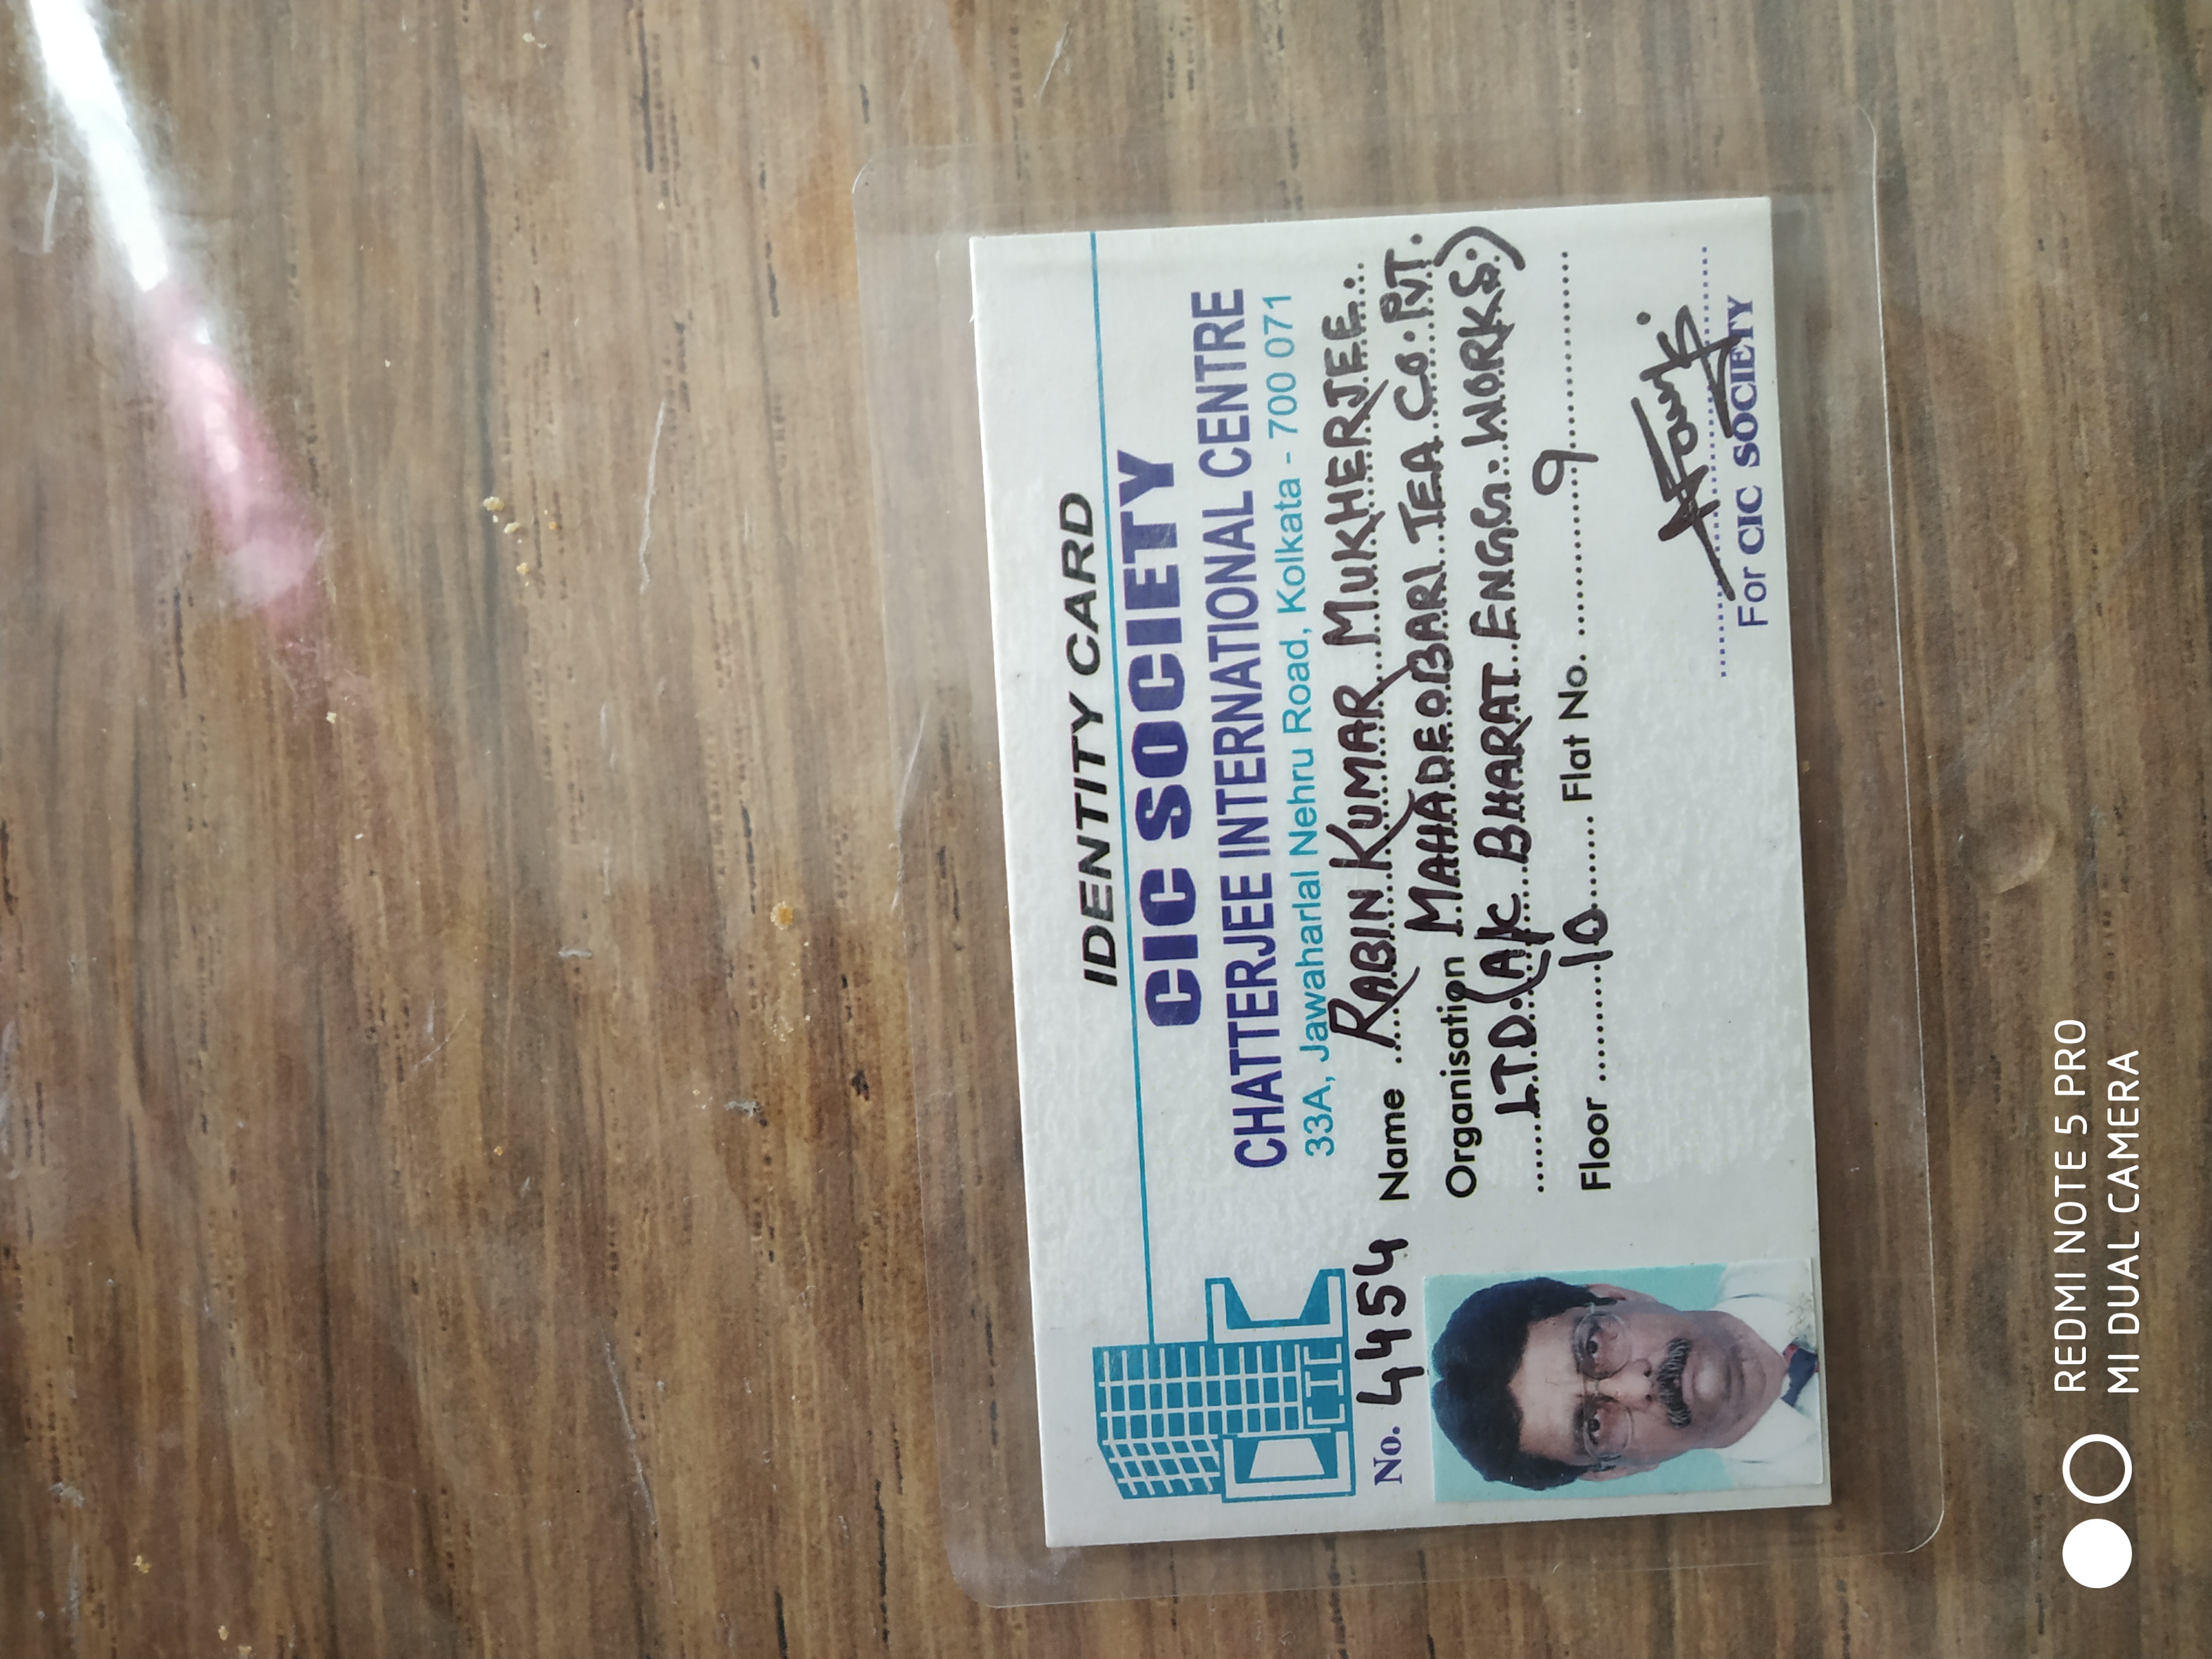 IDENTITY CARD
CIC SOCIETY
CHATTERJEE INTERNATIONAL CENTRE
33A, Jawaharlal Nehru Road, Kolkata - 700 071
CIC
No. 4454
Name RABIN KUMAR MUKHERJEE.
Organisation MAHADEOBARI TEA CO. PVT.
LTD. (A/C BHARAT ENGG. WORKS.)
Floor 10 Flat No. 9
For CIC SOCIETY
REDMI NOTE 5 PRO
MI DUAL CAMERA